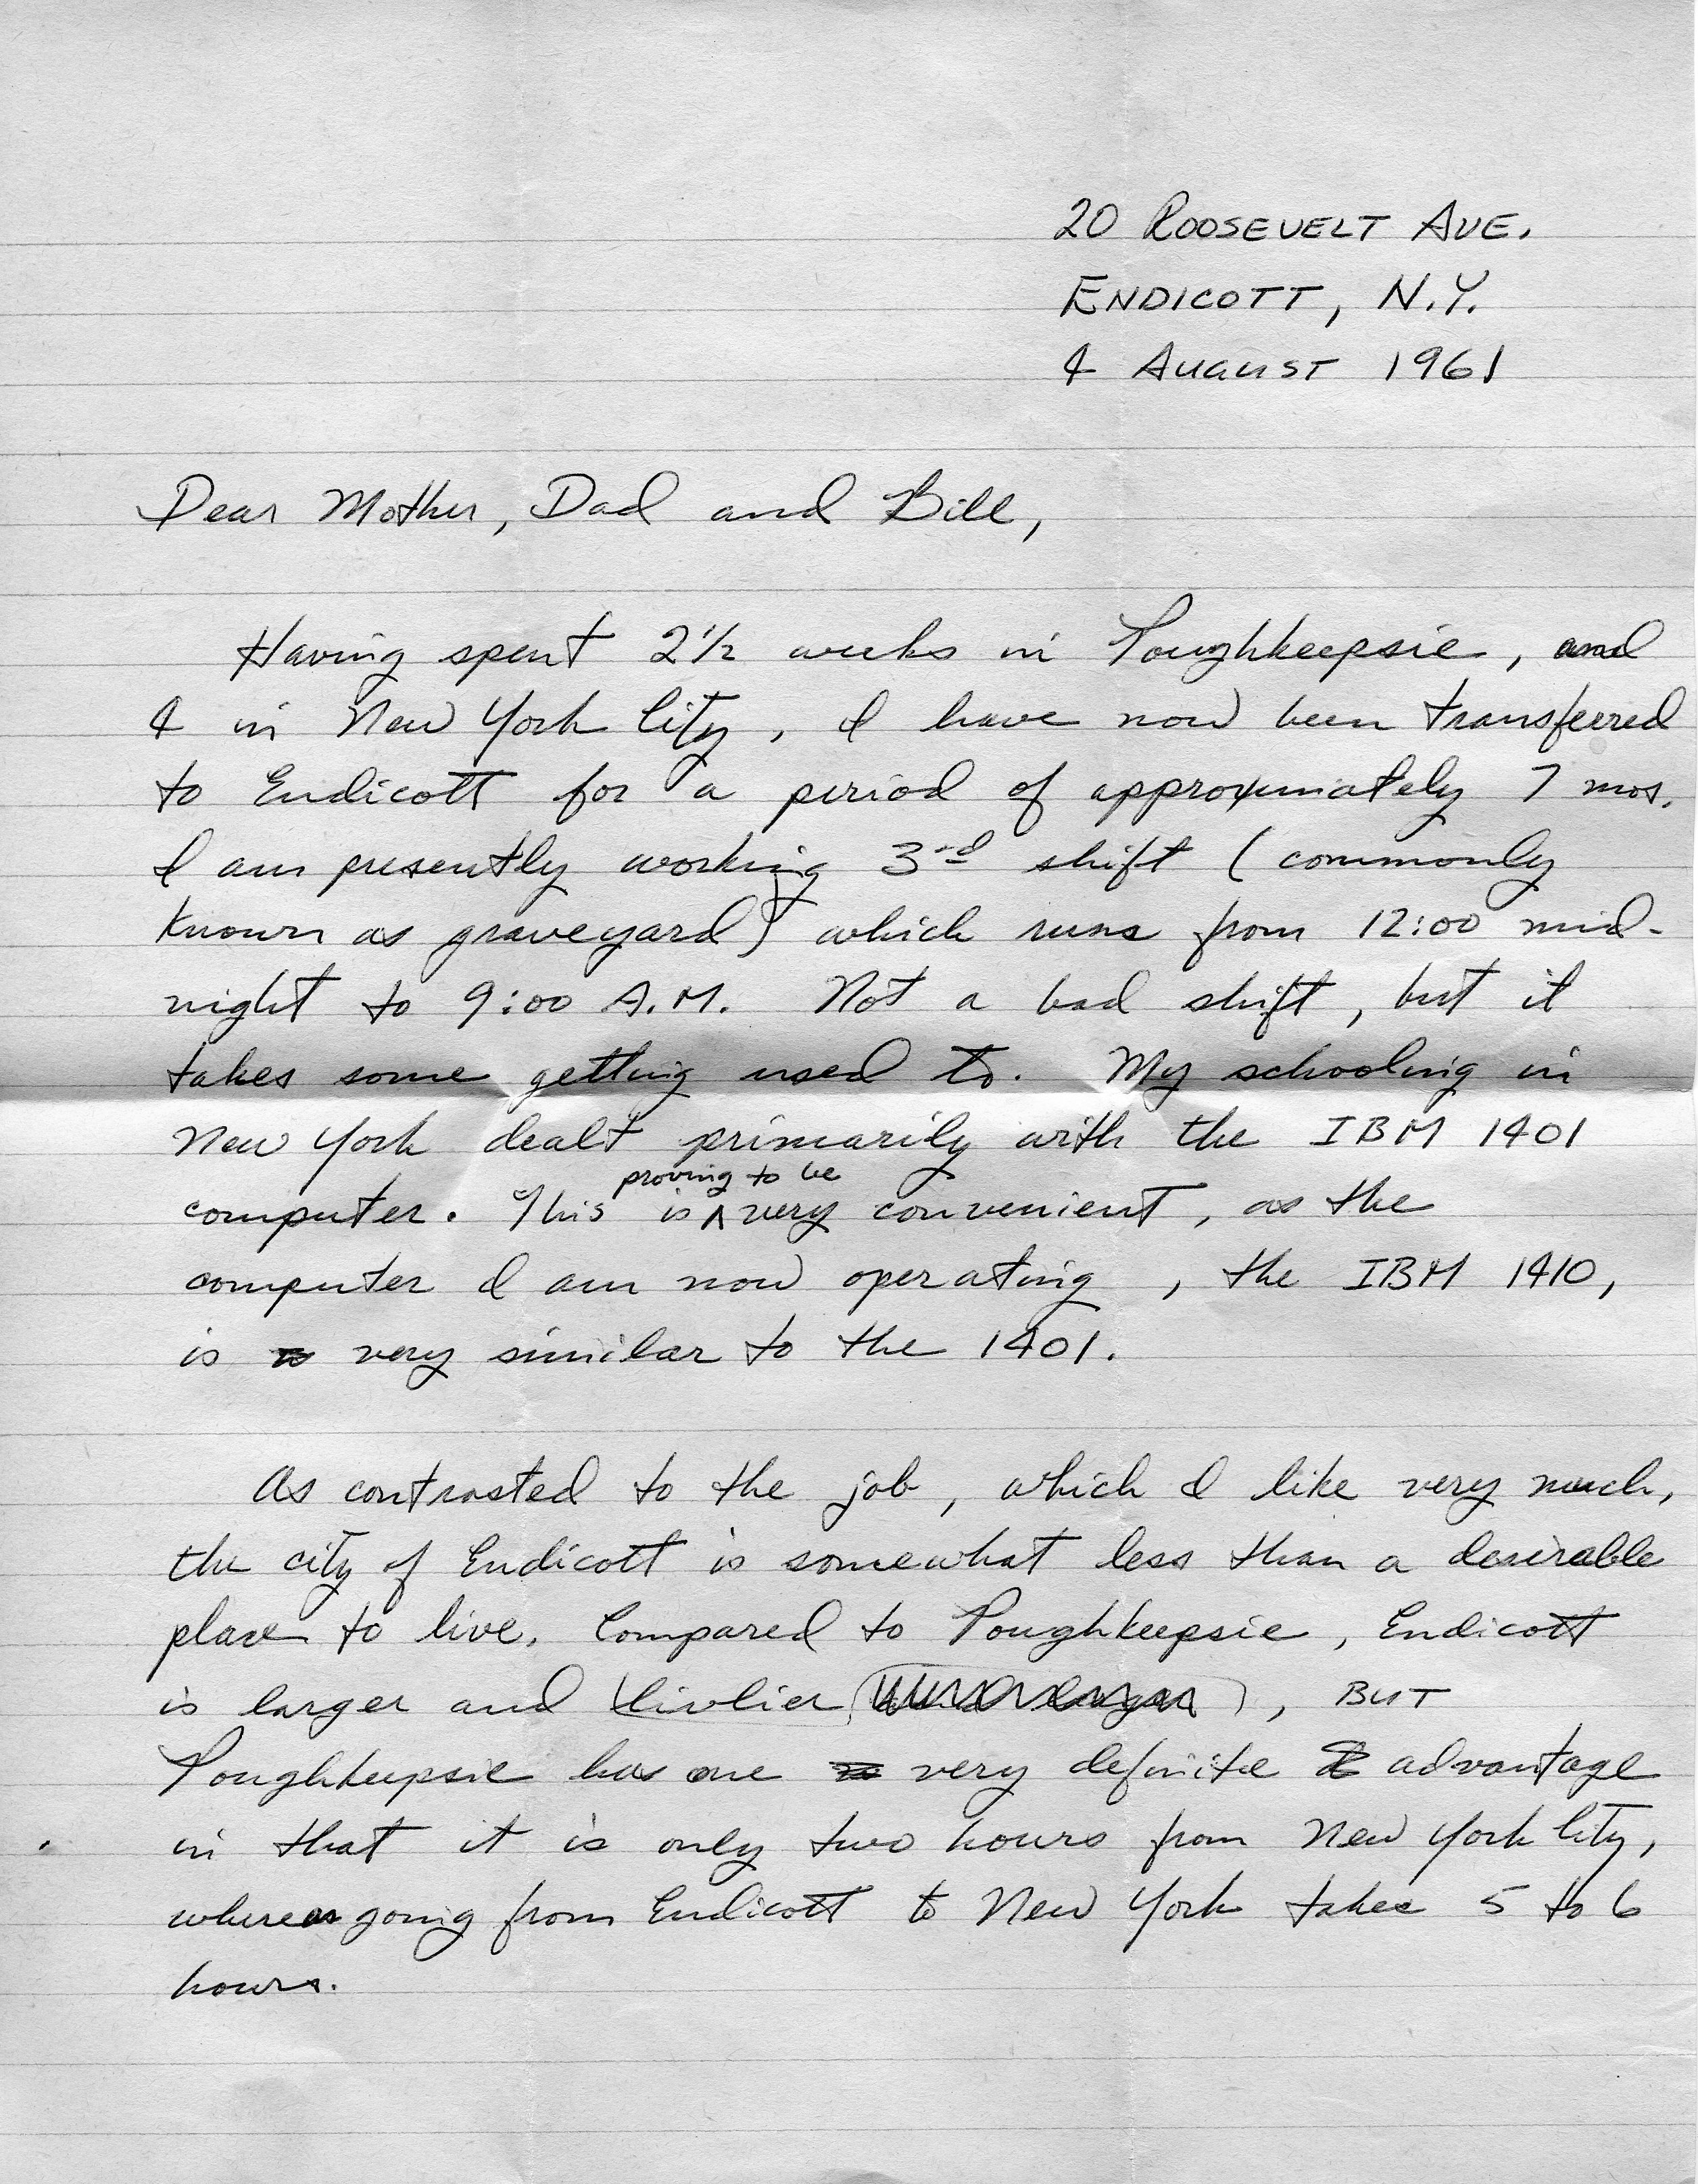 20 ROOSEVELT AVE.
ENDICOTT, N.Y.
4 AUGUST 1961
Dear Mother, Dad and Bill,
Having spent 2 1/2 weeks in Poughkeepsie, and
4 in New York City, I have now been transferred
to Endicott for a period of approximately 7 mos.
I am presently working 3rd shift (commonly
known as graveyard) which runs from 12:00 mid-
night to 9:00 A.M. Not a bad shift, but it
takes some getting used to. My schooling in
New York dealt primarily with the IBM 1401
proving to be
computer. This is ^ very convenient, as the
computer I am now operating, the IBM 1410,
is very similar to the 1401.
As contrasted to the job, which I like very much,
the city of Endicott is somewhat less than a desirable
place to live. Compared to Poughkeepsie, Endicott
is larger and livlier, BUT
Poughkeepsie has one very definite advantage
in that it is only two hours from New York City,
whereas going from Endicott to New York takes 5 to 6
hours.